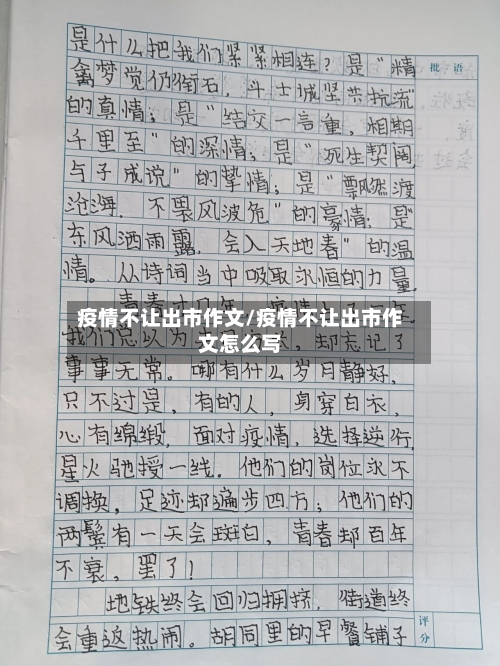 是什么把我们紧紧相连？是“精
批 语
禽梦觉仍衔石，斗士诚坚共抗流”
的真情；是“结交一言重，相期
千里至”的深情；是“死生契阔，
与子成说”的挚情；是“飘然渡
沧海，不畏风波危”的豪情；是“
东风洒雨露，会入天地春”的温
情。从诗词当中吸取永恒的力量。
疫情不让出市作文/疫情不让出市作
文怎么写
我们总以为 却忘记了
事事无常。哪有什么岁月静好，
只不过是，有的人，身穿白衣，
心有绵缎，面对疫情，选择逆行，
星火驰援一线。他们的岗位永不
调换，足迹却遍步四方；他们的
两鬓有一天会斑白，青春却百年
不衰，罢了！
地铁终会回归拥挤，街道终
会重返热闹。胡同里的早餐铺子
评分